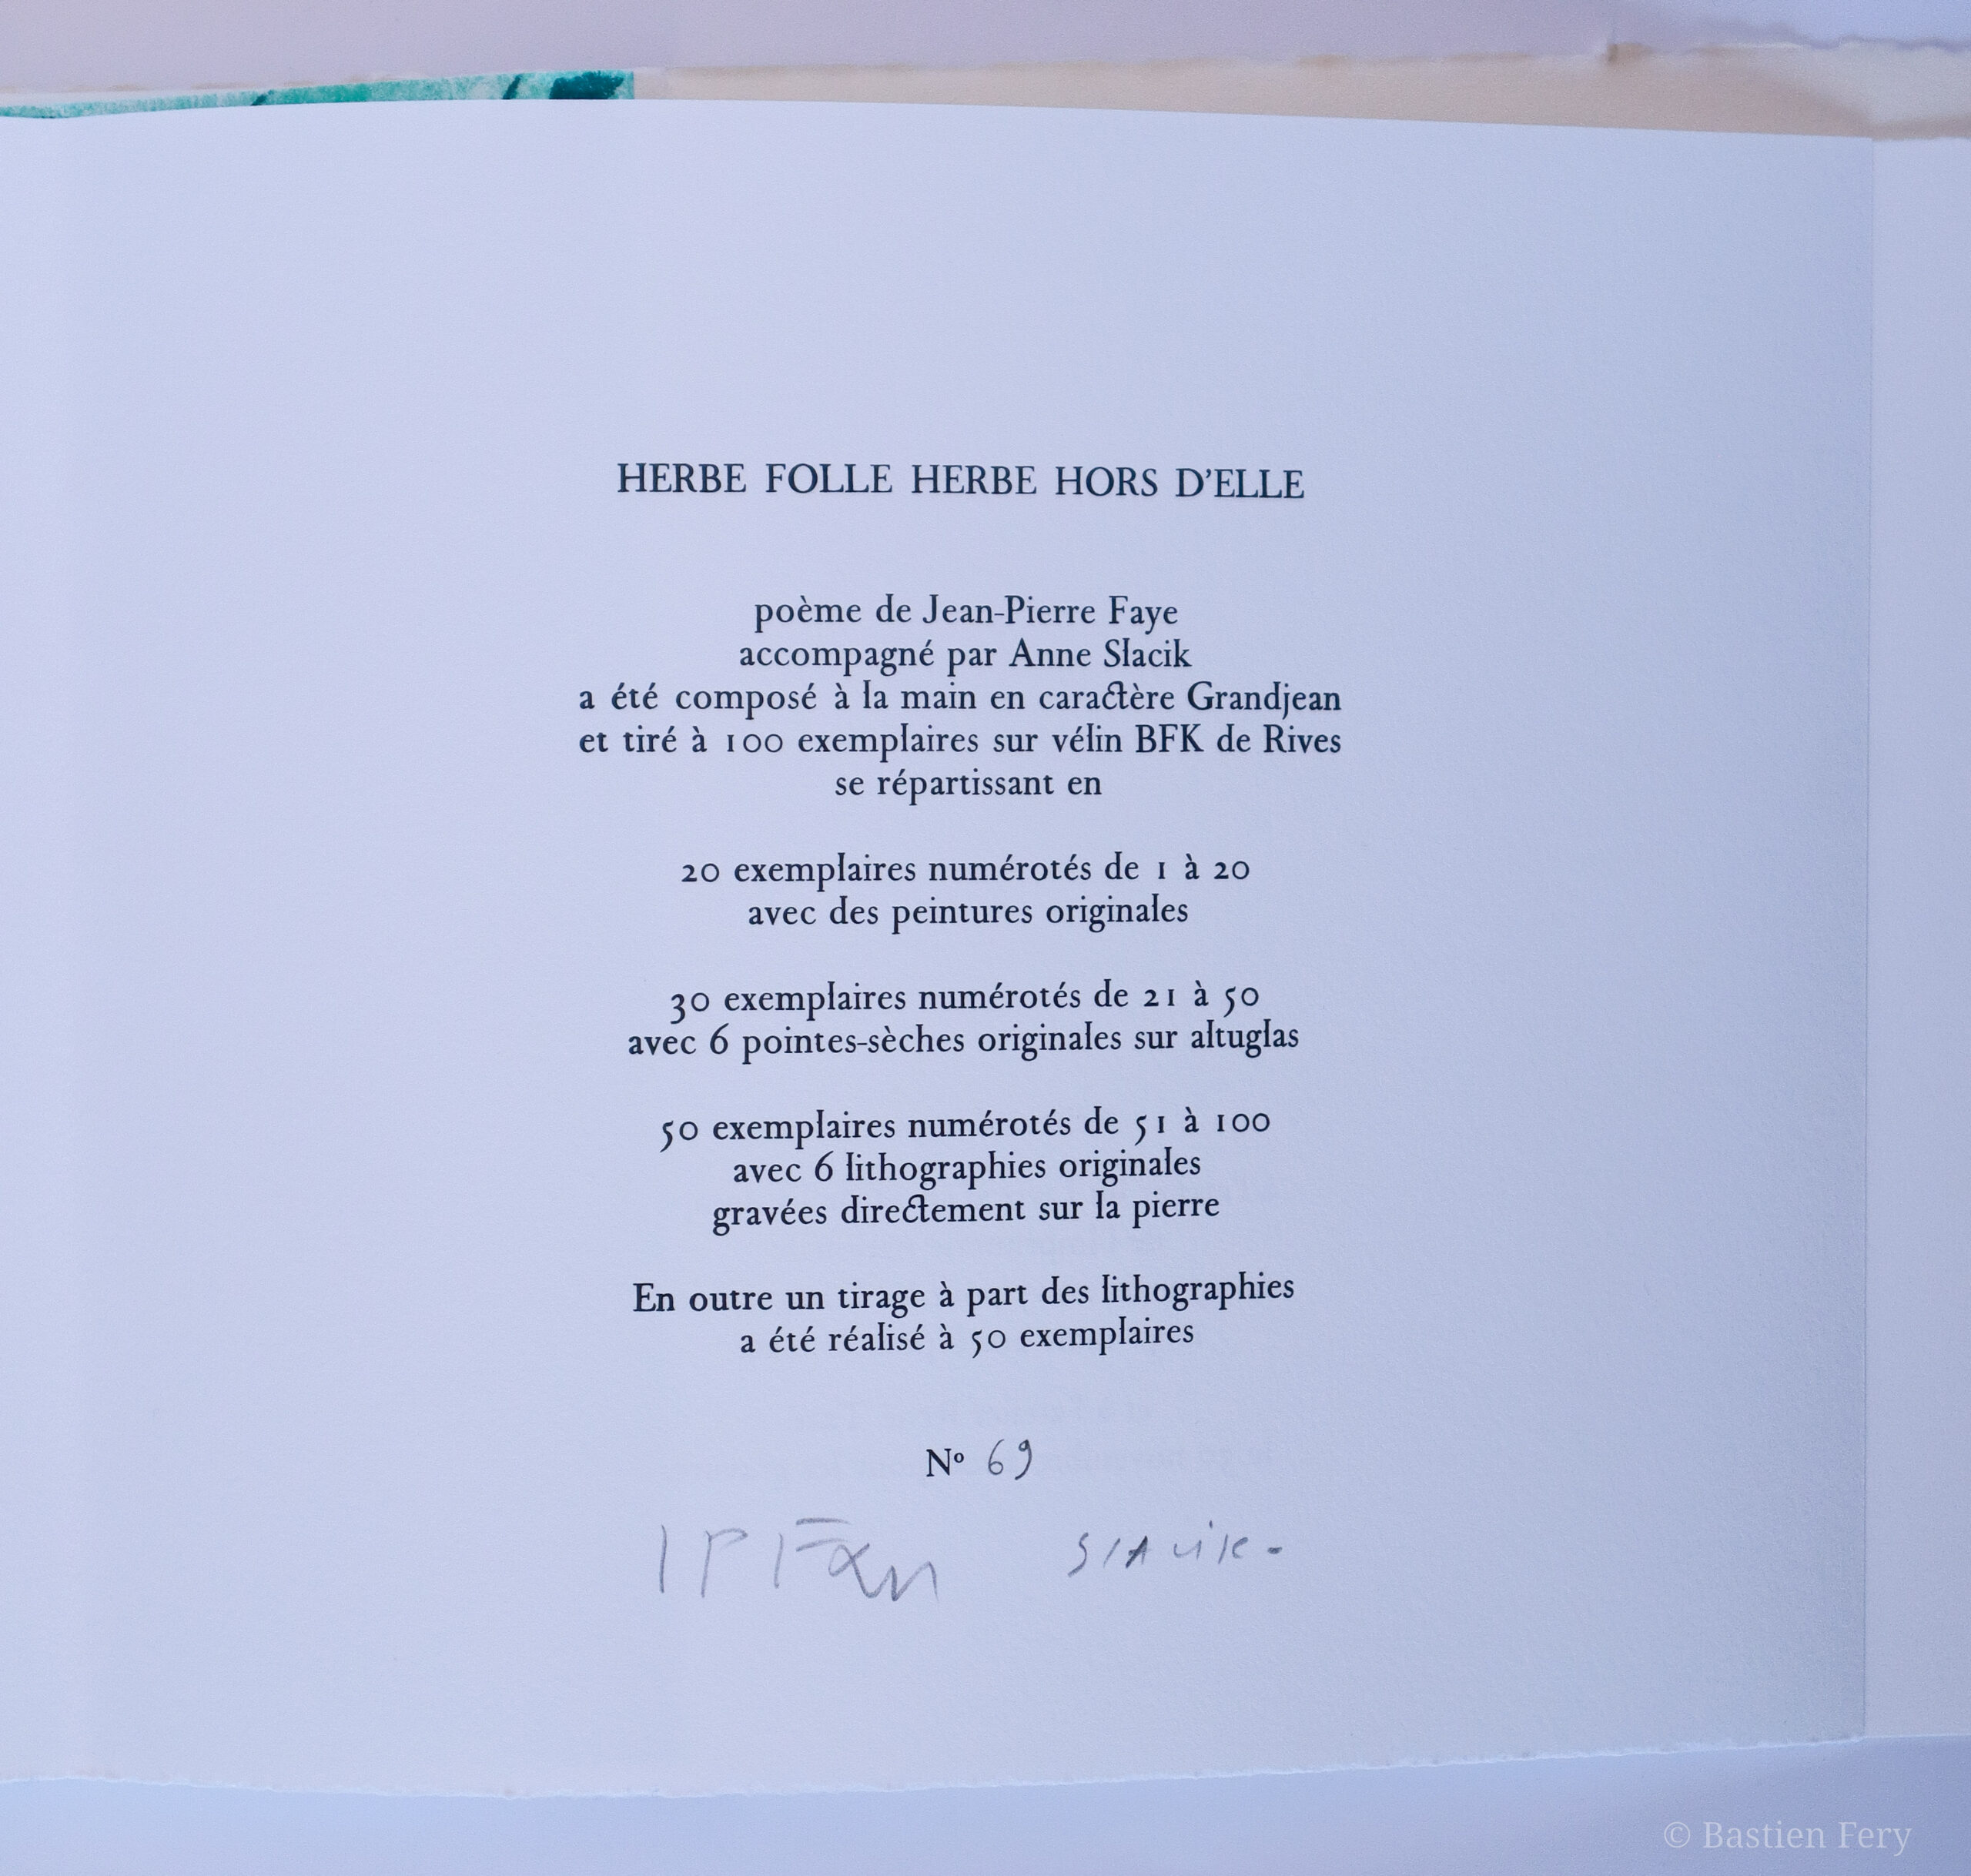 HERBE FOLLE HERBE HORS D'ELLE
poème de Jean-Pierre Faye
accompagné par Anne Slacik
a été composé à la main en caractère Grandjean
et tiré à 100 exemplaires sur vélin BFK de Rives
se répartissant en
20 exemplaires numérotés de 1 à 20
avec des peintures originales
30 exemplaires numérotés de 21 à 50
avec 6 pointes-sèches originales sur altuglas
50 exemplaires numérotés de 51 à 100
avec 6 lithographies originales
gravées directement sur la pierre
En outre un tirage à part des lithographies
a été réalisé à 50 exemplaires
Nº 69
© Bastien Fery